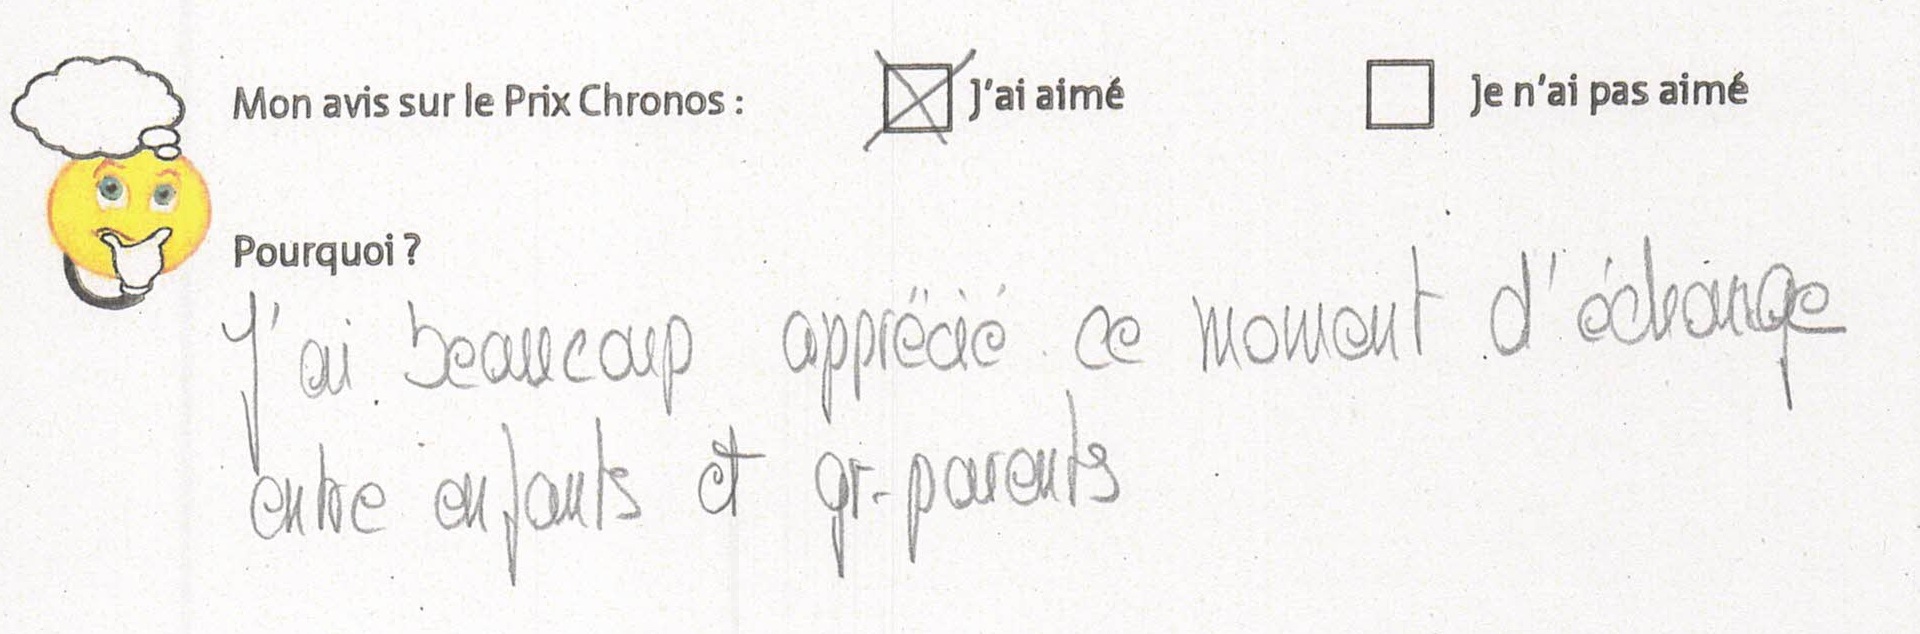 Mon avis sur le Prix Chronos : J'ai aimé Je n'ai pas aimé
Pourquoi ?
J'ai beaucoup apprécié ce moment d'échange
entre enfants et gr-parents